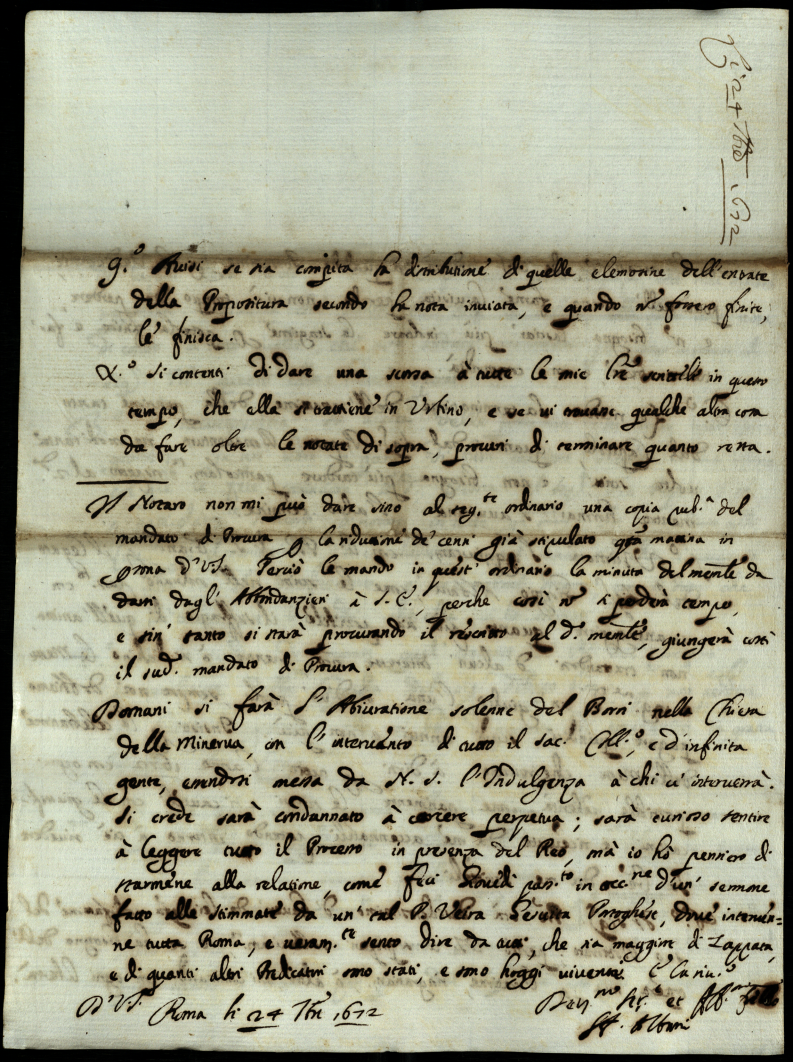 24 7bre 1672
9.° Avisi se sia compita la distributione di quelle elemosine dell'entrate
della Propositura secondo la nota inviata, e quando nō fossero finite,
le finisca.
X.° Si contenti di dare una scorsa à tutte le mie lre scritteli in questo
tempo, che ella si trattiene in Urbino, e se vi trovasse qualche altra cosa
da fare oltre le notate di sopra, procuri di terminare quanto resta.
Il Notaro non mi può dare sino al seg.te ordinario una copia pub.a del
mandato di Procura la riduzione de' censi già stipulato questa mattina in
persona d'V.S. Perciò le mando in quest' ordinario la minuta del
darsi dagl' Abbondanzieri à S. E., perche così nō si perderà tempo,
e sin' tanto si starà procurando il rescritto al d.° giungerà costì
il sud.° mandato di Procura.
Domani si farà l'Abiuratione solenne del Borri nella Chiesa
della Minerva, con l'intervento di tutto il Sac. Coll.°, e d'infinita
gente, essendosi messa da N. S. l'Indulgenza à chi ci interverrà.
Si crede sarà condannato à carcere perpetua; sarà curioso sentire
à leggere tutto il Processo in presenza del Reo, mà io hò pensiero di
starmene alla relatione, come feci Giovedì pass.to in occ.ne d'un' sermone
fatto alle Stimmate da un' tal P. Vieira Gesuita Portoghese, dove interven=
ne tutta Roma, e veram.te sento dire da tutti, che sia maggiore di Zappata,
e di quanti altri Predicatori sono stati, e sono hoggi viventi.
D'V.S. Roma li 24 7bre 1672
Dev.mo Ser.e et
Albani